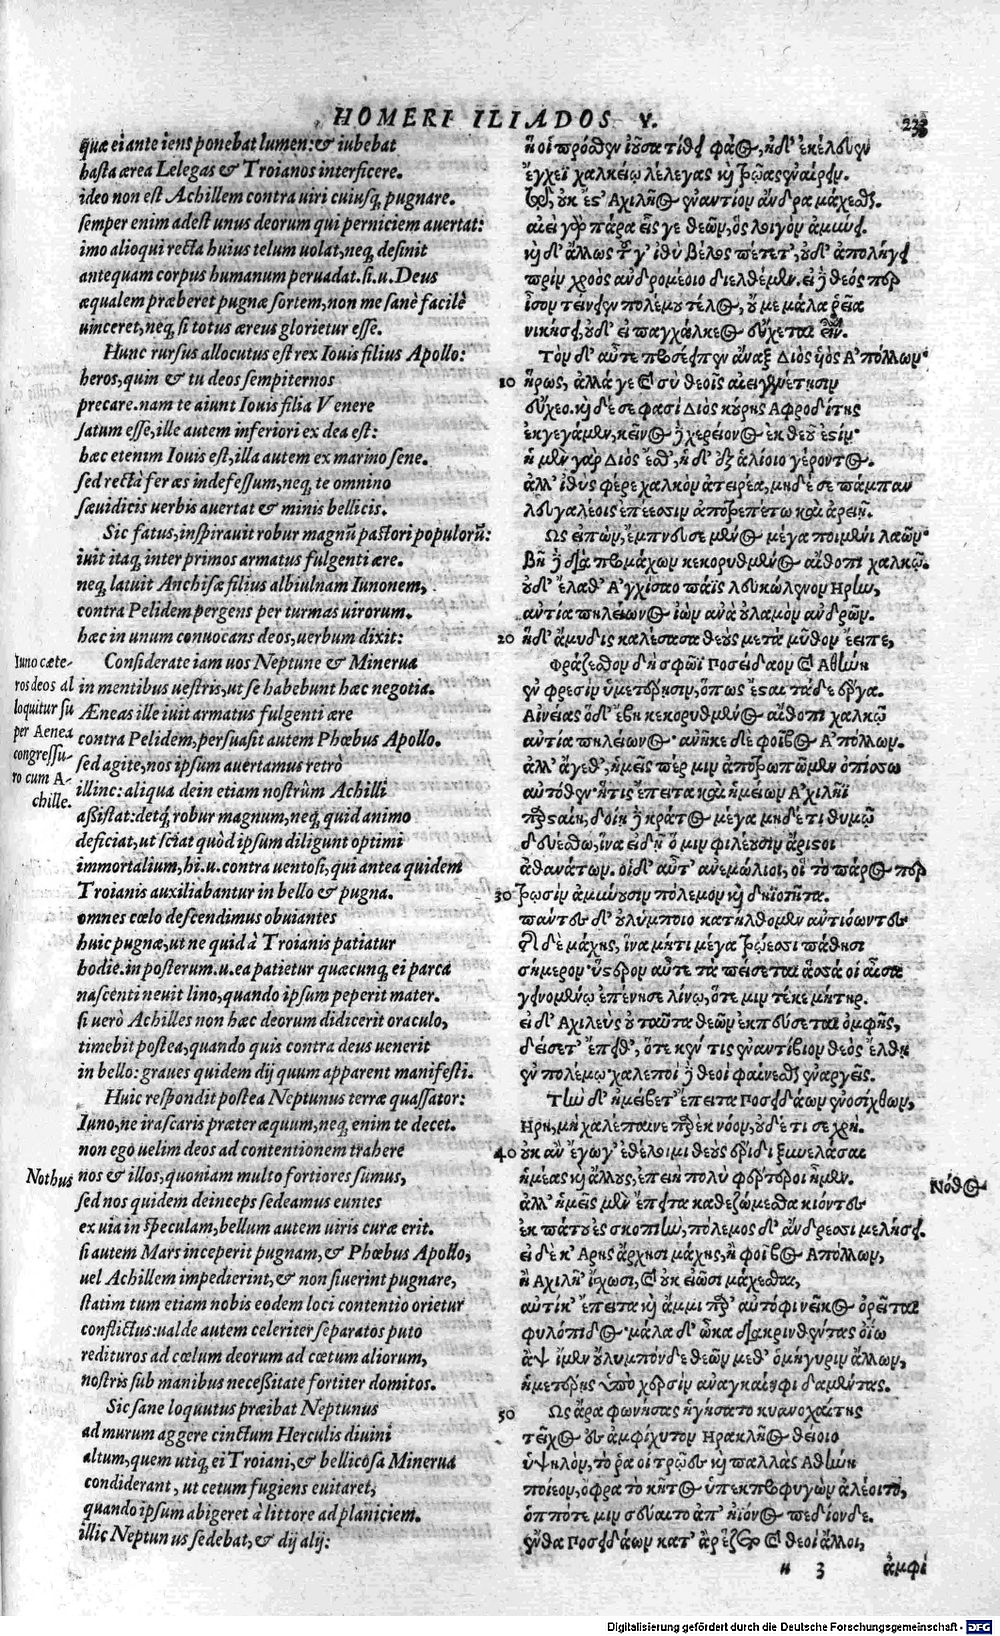 HOMERI ILIADOS Υ.
233
quæ ei ante iens ponebat lumen: & iubebat
hasta ærea Lelegas & Troianos interficere.
ideo non est Achillem contra uiri cuiusq; pugnare.
semper enim adest unus deorum qui perniciem auertat:
imo alioqui recta huius telum uolat, neq; desinit
antequam corpus humanum peruadat. si.u. Deus
æqualem præberet pugnæ sortem, non me sanè facilè
uinceret, neq; si totus æreus glorietur esse.
Hunc rursus allocutus est rex Iouis filius Apollo:
heros, quin & tu deos sempiternos
precare. nam te aiunt Iouis filia Venere
satum esse, ille autem inferiori ex dea est:
hæc etenim Iouis est, illa autem ex marino sene.
sed rectà fer æs indefessum, neq; te omnino
sæuidicis uerbis auertat & minis bellicis.
Sic fatus, inspirauit robur magnũ pastori populorũ:
iuit itaq; inter primos armatus fulgenti ære.
neq; latuit Anchisæ filius albiulnam Iunonem,
contra Pelidem pergens per turmas uirorum.
hæc in unum conuocans deos, uerbum dixit:
Considerate iam uos Neptune & Minerua
in mentibus uestris, ut se habebunt hæc negotia.
Æneas ille iuit armatus fulgenti ære
contra Pelidem, persuasit autem Phœbus Apollo.
sed agite, nos ipsum auertamus retrò
illinc: aliqua dein etiam nostrûm Achilli
assistat: detq; robur magnum, neq; quid animo
deficiat, ut sciat quòd ipsum diligunt optimi
immortalium, hi.u. contra uentosi, qui antea quidem
Troianis auxiliabantur in bello & pugna.
omnes cœlo descendimus obuiantes
huic pugnæ, ut ne quid à Troianis patiatur
hodie. in posterum.u. ea patietur quæcunq; ei parca
nascenti neuit lino, quando ipsum peperit mater.
si uerò Achilles non hæc deorum didicerit oraculo,
timebit postea, quando quis contra deus uenerit
in bello: graues quidem dij quum apparent manifesti.
Huic respondit postea Neptunus terræ quassator:
Iuno, ne irascaris præter æquum, neq; enim te decet.
non ego uelim deos ad contentionem trahere
nos & illos, quoniam multo fortiores sumus,
sed nos quidem deinceps sedeamus euntes
ex uia in speculam, bellum autem uiris curæ erit.
si autem Mars inceperit pugnam, & Phœbus Apollo,
uel Achillem impedierint, & non siuerint pugnare,
statim tum etiam nobis eodem loci contentio orietur
conflictus: ualde autem celeriter separatos puto
redituros ad cœlum deorum ad cœtum aliorum,
nostris sub manibus necessitate fortiter domitos.
Sic sane loquutus præibat Neptunus
ad murum aggere cinctum Herculis diuini
altum, quem utiq; ei Troiani, & bellicosa Minerua
condiderant, ut cetum fugiens euitaret,
quando ipsum abigeret à littore ad planiciem.
illic Neptunus sedebat, & dij alij:
Iuno cæte-
ros deos al
loquitur su
per Aenea
congressu-
ro cum A-
chille.
Nothus
ἥ οἱ πρόσθεν ἰοῦσα τίθει φάος, ἠδ' ἐκέλευεν
ἔγχεϊ χαλκείῳ λέλεγας καὶ τρῶας ἐναίρειν.
τῷ, οὐκ ἔς' Αχιλῆος ἐναντίον ἄνδρα μάχεσθαι.
αἰεὶ γὰρ πάρα εἷς γε θεῶν, ὃς λοιγὸν ἀμύνει.
καὶ δ' ἄλλως τοῦ γ' ἰθὺ βέλος πέτετ', οὐδ' ἀπολήγει
πρὶν χροὸς ἀνδρομέοιο διελθέμεν. εἰ δὲ θεός περ
ἶσον τείνειεν πολέμου τέλος, οὔ με μάλα ῥεῖα
νικήσει, οὐδ' εἰ παγχάλκεος εὔχεται εἶναι.
Τὸν δ' αὖτε προσέειπεν ἄναξ Διὸς υἱὸς Α'πόλλων·
10 ἥρως, ἀλλά γε καὶ σὺ θεοῖς αἰειγενέτῃσιν
εὔχεο. καὶ δέ σε φασὶ Διὸς κούρης Αφροδίτης
ἐκγεγάμεν, κεῖνος δὲ χερείονος ἐκ θεοῦ ἐςίν·
ἡ μὲν γὰρ Διὸς ἔσθ', ἡ δ' ἐξ ἁλίοιο γέροντος.
ἀλλ' ἰθὺς φέρε χαλκὸν ἀτειρέα, μηδέ σε πάμπαν
λευγαλέοις ἐπέεσσιν ἀποτρεπέτω καὶ ἀρειῇ.
Ως εἰπὼν, ἔμπνευσε μένος μέγα ποιμένι λαῶν·
βῆ δὲ διὰ προμάχων κεκορυθμένος αἴθοπι χαλκῷ.
οὐδ' ἔλαθ' Α'γχίσαο πάϊς λευκώλενον Ηρην,
ἀντία πηλείωνος ἰὼν ἀνὰ οὐλαμὸν ἀνδρῶν.
20 ἡ δ' ἄμυδις καλέσασα θεοὺς μετὰ μῦθον ἔειπε,
Φράζεσθον δὴ σφῶϊ Ποσείδαον καὶ Αθήνη
ἐν φρεσὶν ὑμετέρῃσιν, ὅπως ἔςαι τάδε ἔργα.
Αἰνείας ὅδ' ἔβη κεκορυθμένος αἴθοπι χαλκῷ
ἀντία πηλείωνος· ἀνῆκε δὲ φοῖβος Α'πόλλων.
ἀλλ' ἄγεθ', ἡμεῖς πέρ μιν ἀποτρωπῶμεν ὀπίσσω
αὐτόθεν· ἤ τις ἔπειτα καὶ ἡμείων Α'χιλῆϊ
παρςαίη, δοίη δὲ κράτος μέγα μηδέ τι θυμῷ
δευέσθω, ἵνα εἰδῇ ὅ μιν φιλέουσιν ἄριςοι
ἀθανάτων. οἱ δ' αὖτ' ἀνεμώλιοι, οἳ τὸ πάρος περ
30 τρωσὶν ἀμύνουσιν πόλεμον καὶ δηϊοτῆτα.
πάντες δ' οὐλύμποιο κατήλθομεν ἀντιόωντες
τῆς δὲ μάχης, ἵνα μήτι μέγα τρώεσσι πάθῃσι
σήμερον· ὕςερον αὖτε τὰ πείσεται ἅσσά οἱ αἶσα
γεινομένῳ ἐπένησε λίνῳ, ὅτε μιν τέκε μήτηρ.
εἰ δ' Αχιλεὺς οὐ ταῦτα θεῶν ἐκ πεύσεται ὀμφῆς,
δείσετ' ἔπειθ', ὅτε κέν τις ἐναντίβιον θεὸς ἔλθῃ
ἐν πολέμῳ· χαλεποὶ δὲ θεοὶ φαίνεσθαι ἐναργεῖς.
Τὴν δ' ἠμείβετ' ἔπειτα Ποσειδάων ἐνοσίχθων,
Ηρη, μὴ χαλέπαινε παρὲκ νόον, οὐδέ τι σε χρή.
40 οὐκ ἂν ἔγωγ' ἐθέλοιμι θεοὺς ἔριδι ξυνελάσσαι
ἡμέας καὶ ἄλλους, ἐπειὴ πολὺ φέρτεροί ἦμεν.
ἀλλ' ἡμεῖς μὲν ἔπειτα καθεζώμεσθα κιόντες
ἐκ πάτου ἐς σκοπιὴν, πόλεμος δ' ἄνδρεσσι μελήσει.
εἰ δέ κ' Αρης ἄρχῃσι μάχης, ἢ φοῖβος Απόλλων,
ἢ Αχιλῆ' ἴσχωσι, καὶ οὐκ εἰῶσι μάχεσθαι,
αὐτίκ' ἔπειτα καὶ ἄμμι παρ' αὐτόφι νεῖκος ὀρεῖται
φυλόπιδος· μάλα δ' ὦκα διακρινθέντας ὀΐω
ἂψ ἴμεν οὔλυμπόνδε θεῶν μεθ' ὁμήγυριν ἄλλων,
ἡμετέρῃς ὑπὸ χερσὶν ἀναγκαίηφι δαμέντας.
50 Ως ἄρα φωνήσας ἡγήσατο κυανοχαίτης
τεῖχος ἐς ἀμφίχυτον Ηρακλῆος θείοιο
ὑψηλὸν, τό ῥα οἱ τρῶες καὶ παλλὰς Αθήνη
ποίεον, ὄφρα τὸ κῆτος ὑπεκπροφυγὼν ἀλέοιτο,
ὁππότε μιν σεύαιτο ἀπ' ἠϊόνος πεδίονδε.
ἔνθα Ποσειδάων κατ' ἄρ ἕζετο καὶ θεοὶ ἄλλοι,
Νόθος
n 3 ἀμφὶ
Digitalisierung gefördert durch die Deutsche Forschungsgemeinschaft - DFG